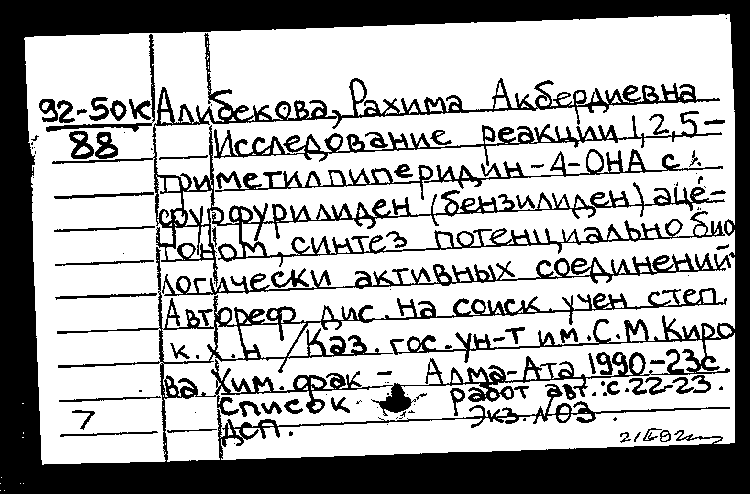 92-50К Алибекова, Рахима Акбердиевна
88 Исследование реакции 1,2,5-
триметилпиперидин-4-ОНА с
фурфурилиден (бензилиден) аце-
тоном, синтез потенциально био
логически активных соединений
Автореф. дис. на соиск. учен степ.
к.х.н. / Каз. гос. ун-т им. С.М. Киро
ва. Хим. фак - Алма-Ата, 1990.-23с.
список работ авт.: с.22-23.
7 ДСП. Экз. №03.